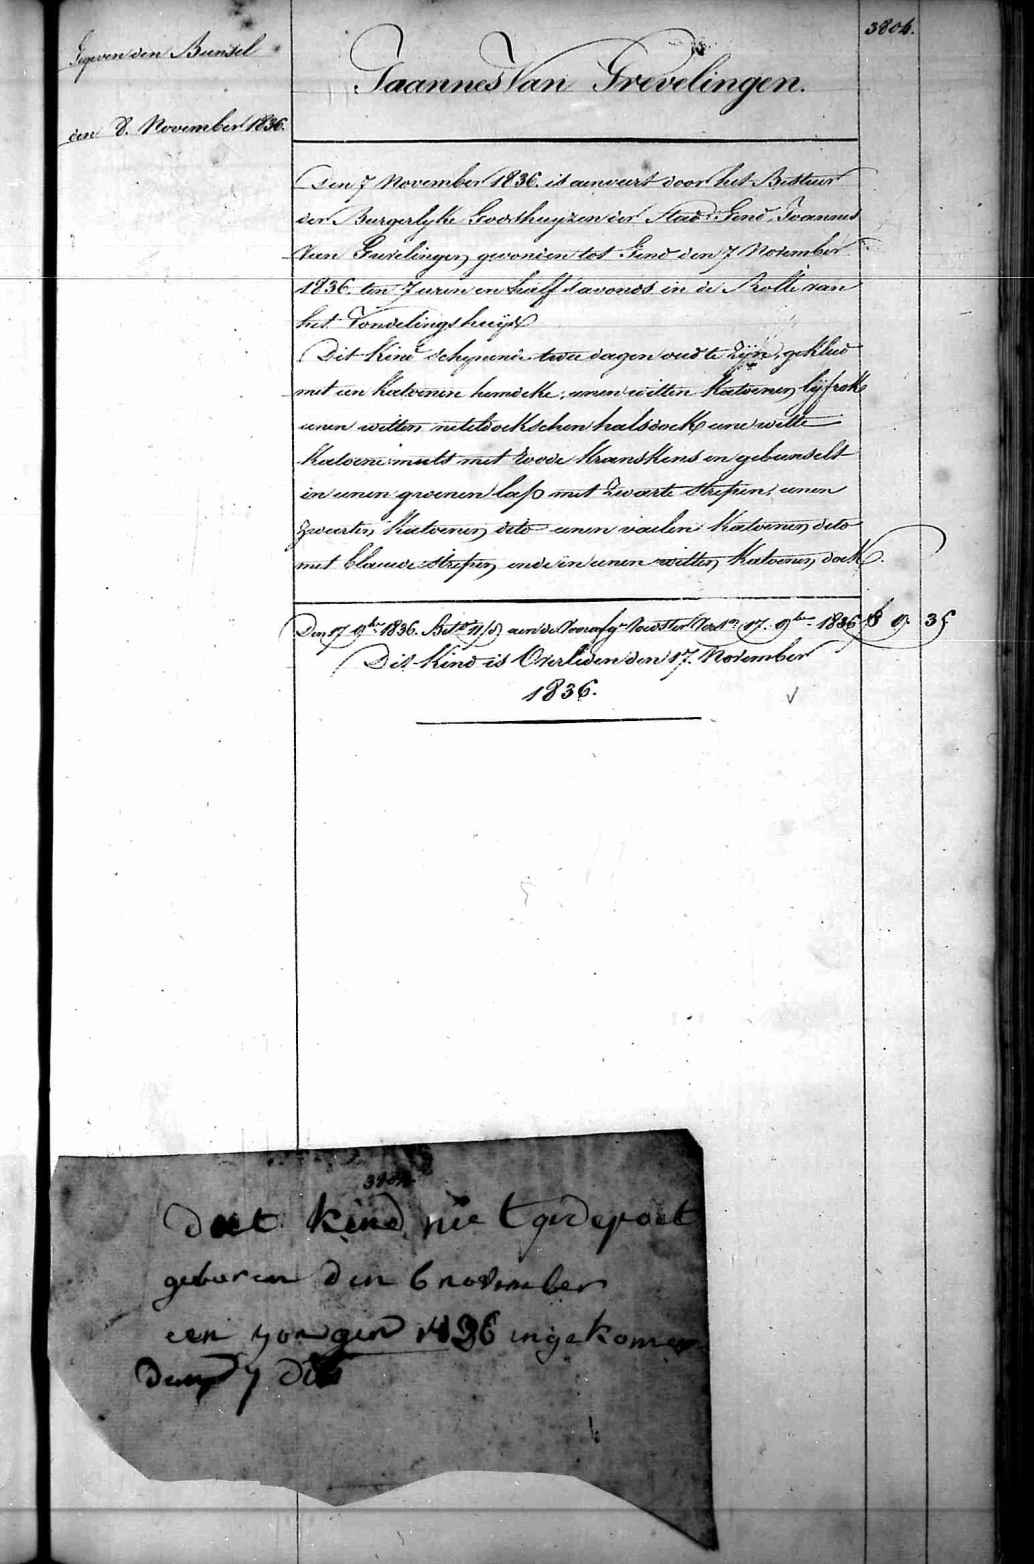 3804.
Gegeven den Bunsel
den 8. November 1836.
Joannes Van Grevelingen.
Den 7 November 1836. is aenveert door het Bestuer
der Burgerlyke Godshuyzen der Stad Gend, Joannes
Van Grevelingen, gevonden tot Gend den 7 November
1836. ten 7 uren en half s'avonds in de Rolle van
het Vondelingshuys
Dit Kind schynende twee dagen oud te zyn, gekleed
met een katoenen hemdeke, eenen witten katoenen lyfrok
eenen witten neteldoekschen halsdoek eene witte
katoene muts met roode kranskens en gebunselt
in eenen groenen lap met zwarte strepen, eenen
zwarten katoenen dito eenen vaelen katoenen dito
met blauwe strepen, ende in eenen witten katoenen doek.
Den 17 9ber 1836. aen de Voedster 17. 9ber 1836 9. 35
Dit Kind is Overleden den 17. November
1836.
3804
dat kind nie
geboren den 6 november
een yongen 1836 ingekomen
den 7 dito